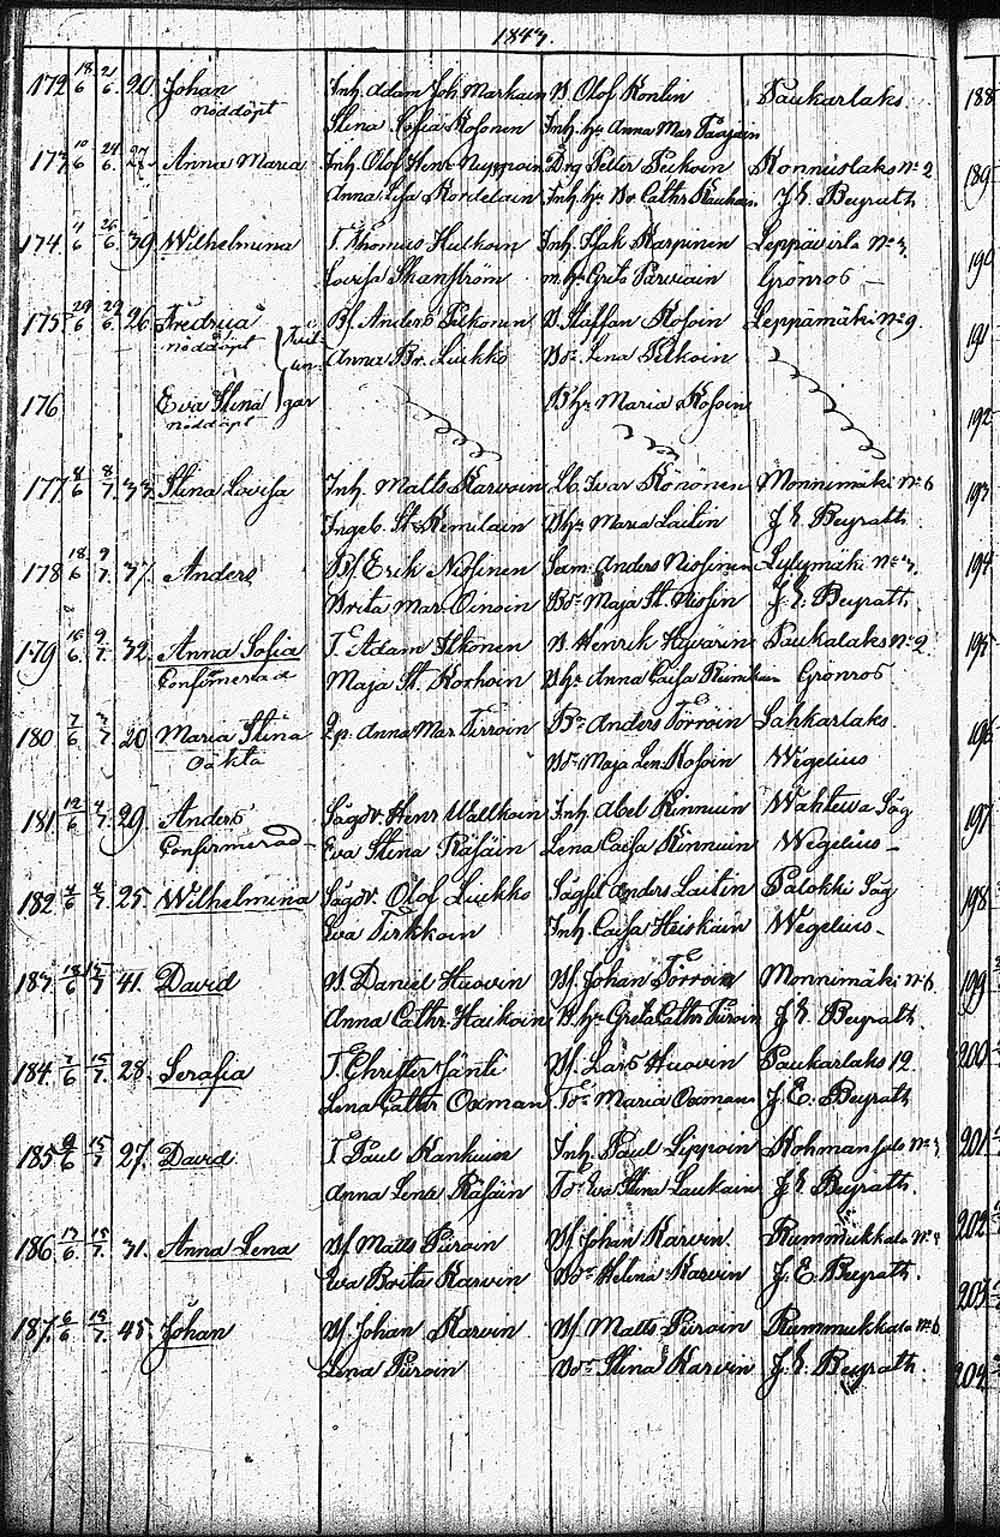 1843.
172 18/6 21/6 20 Johan Inh. Adam Joh. Markain B. Olof Konlin Paukarlaks 188
nöddöpt Stina Sofia Kosonen Inh. hr Anna Mar.
173 10/6 24/6 Anna Maria Inh. Olof Henr. Drg Petter Pitkoin Konnuslaks No 2 189
Anna Lisa Kordelain Inh. hr Br. Cathr. J. E. Beyrath
174 4/6 26/6 39 Wilhelmina T. Thomas Hulkoin Inh. Isak Karpinen Leppävirta No 3. 190
Lovisa Skanström m. hr Greta Parviain Grönros
175 29/6 29/6 26 Fredrica Bf. Anders Pitkonen D. Staffan Kosoin Leppämäki No 9. 191
nöddöpt Tvil- Anna Br. Luikko Dor Lena Pitkoin
176 Eva Stina lin- gar B hr Maria Kosoin 192
nöddöpt
177 4/6 8/7 33. Stina Lovisa Inh. Matts Karvoin Lb. Ivar Könönen Monnimäki No 6 193
Ingeb. St. Kemilain B hr Maria Laitin J. E. Beyrath
178 18/6 9/7 37. Anders Bf. Erik Nissinen Säm. Anders Nissinen Lylymäki No 3. 194
Brita Mar. Oinoin Dor Maja St. Nissin J. E. Beyrath.
179 16/6 9/7 32. Anna Sofia T. Adam Itkonen B. Henrik Hyvärin Paukalaks No 2. 195
Confirmerad Maja St. Korhoin B hr Anna Caisa Grönros
180 7/6 3/7 20 Maria Stina Qp. Anna Mar. Tirroin Br Anders Törröin Sahkarlaks. 196
Oäkta Dor Maja Len. Kosoin Wegelius
181 12/6 4/7 29. Anders Sågdr. Henr. Wallkoin Inh. Abel Kinnuin Wahtewa Såg 197
Confirmerad Eva Stina Räsäin Lena Caisa Kinnuin Wegelius
182 4/6 4/7 25. Wilhelmina Sågdr. Olof Luikko Anders Laitin Palokki Såg 198
Eva Tirkkoin Inh. Caisa Heiskain Wegelius
183 18/6 15/7 41. David B. Daniel Huovin Bf. Johan Törroin Monnimäki No 6. 199
Anna Cathr. Haikoin B. hr Greta Cathr. Piiroin J. E. Beyrath.
184. 7/6 15/7 28. Serafia T. Christer Jänti Bf. Lars Huovin Paukarlaks 12. 200
Lena Cathr. Oxman Tor Maria Oxman J. E. Beyrath
185 9/6 15/7 27. David T. Paul Kankuin Inh. Paul Lippoin 201
Anna Lena Räsäin Tor Eva Stina Laukain J. E. Beyrath.
186. 17/6 15/7 31. Anna Lena Bf. Matts Piiroin Bf. Johan Karvin. Rummukkala No 202
Eva Brita Karvin Dor Helena Karvin J. E. Beyrath.
187. 6/6 15/7 45. Johan Bf. Johan Karvin. Bf. Matts Piiroin Rummukkala No 6. 203
Lena Piiroin Dor Stina Karvin J. E. Beyrath. 204